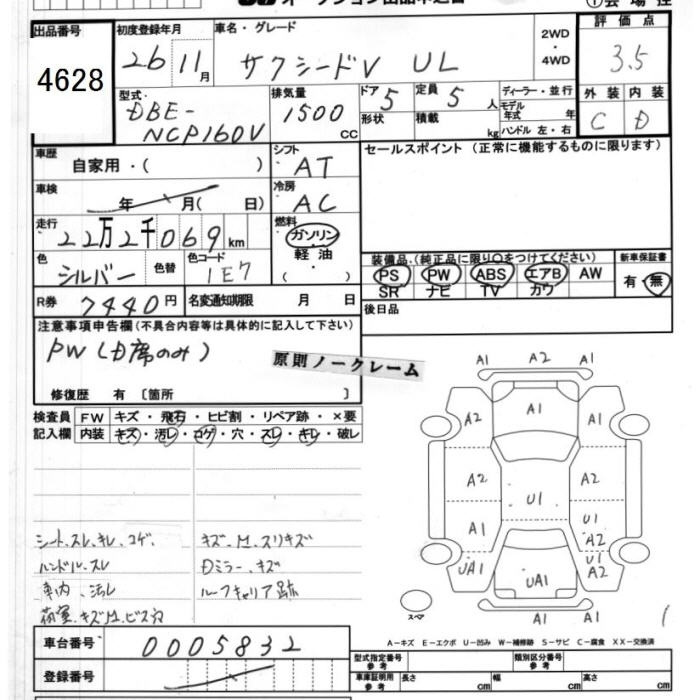 出品番号
4628
初度登録年月
26 11月
車名・グレード
サクシードV UL
2WD
・
4WD
評価点
3.5
型式
DBE-
NCP160V
排気量
1500
cc
ドア 5
定員 5 人
形状
積載 kg
ディーラー・並行
モデル
年式 年
ハンドル 左・右
外装
内装
C
D
車歴
自家用・( )
シフト
AT
セールスポイント (正常に機能するものに限ります)
車検
年 月( 日)
冷房
AC
走行
22万2千069km
燃料
ガソリン
軽油
( ・ )
色
シルバー
色替
色コード
1E7
装備品・(純正品に限り○をつけてください)
新車保証書
PS PW ABS エアB AW
SR ナビ TV カワ
有・無
R券
7440円
名変通知期限 月 日
後日品
注意事項申告欄(不具合内容等は具体的に記入して下さい)
PW(D席のみ)
原則ノークレーム
修復歴 有 〔箇所 〕
検査員
記入欄
FW キズ・飛石・ヒビ割・リペア跡・×要
内装 キズ・汚レ・コゲ・穴・スレ・キレ・破レ
シート、スレ、キレ、コゲ、
ハンドル、スレ
車内、汚レ
荷室、キズM、ビス穴
キズ、M、スリキズ
Dミラー、キズ
ルーフキャリア跡
A1 A2 A1
A2 A1 A2
A2 A2
U1
A1 U1
A2
U1
UA1 UA1 A2
A1 A1
スペア
A-キズ E-エクボ U-凹み W-補修跡 S-サビ C-腐食 XX-交換済
車台番号
0005832
登録番号
型式指定番号
参考
類別区分番号
参考
車庫証明用
参考
長さ cm
幅 cm
高さ cm